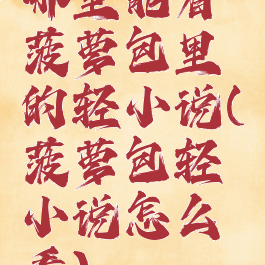 哪里能看
菠萝包里
的轻小说(
菠萝包轻
小说怎么
看)